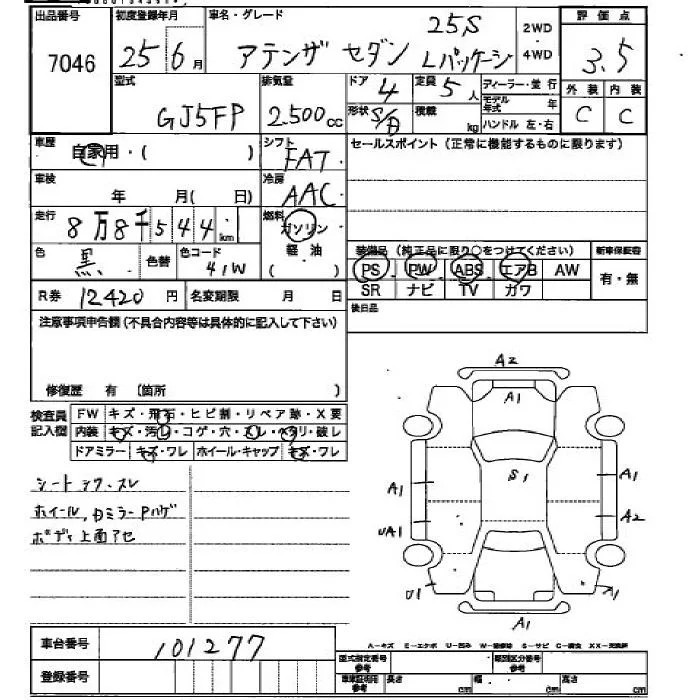 出品番号 初度登録年月 車名・グレード 評価点
7046 25 6月 アテンザ セダン 25S Lパッケージ 2WD・4WD 3.5
型式 排気量 ドア 4 定員 5人 ディーラー・並行 外装 内装
GJ5FP 2.500cc 形状 S/D 積載 kg モデル年式 年 C C
ハンドル 左・右
車歴 自家用・( ) シフト FAT セールスポイント(正常に機能するものに限ります)
車検 年 月( 日) 冷房 AAC
走行 8万8千544km 燃料 ガソリン
色 黒 色替 色コード 41W 軽・油 ( )
装備品(純正品に限り○をつけてください) 新車保証書
PS PW ABS エアB AW 有・無
R券 12420円 名変期限 月 日 SR ナビ TV カワ
注意事項申告欄(不具合内容等は具体的に記入して下さい) 後日品
修復歴 有 (箇所 )
検査員記入欄 FW キズ・飛石・ヒビ割・リペア跡・X要
内装 キズ・汚レ・コゲ・穴・スレ・ヘタリ・破レ
ドアミラー キズ・ワレ ホイール・キャップ キズ・ワレ
シート シワ・スレ
ホイール,
ボディ上面アセ
A2
A1
S1
A1 A1
UA1 A2
U1 A1
A1
車台番号 101277
登録番号
A-キズ E-エクボ U-凹み W-補修跡 S-サビ C-腐食 XX-交換済
型式指定番号 参考 類別区分番号 参考
車庫証明用 参考 長さ cm 幅 cm 高さ cm